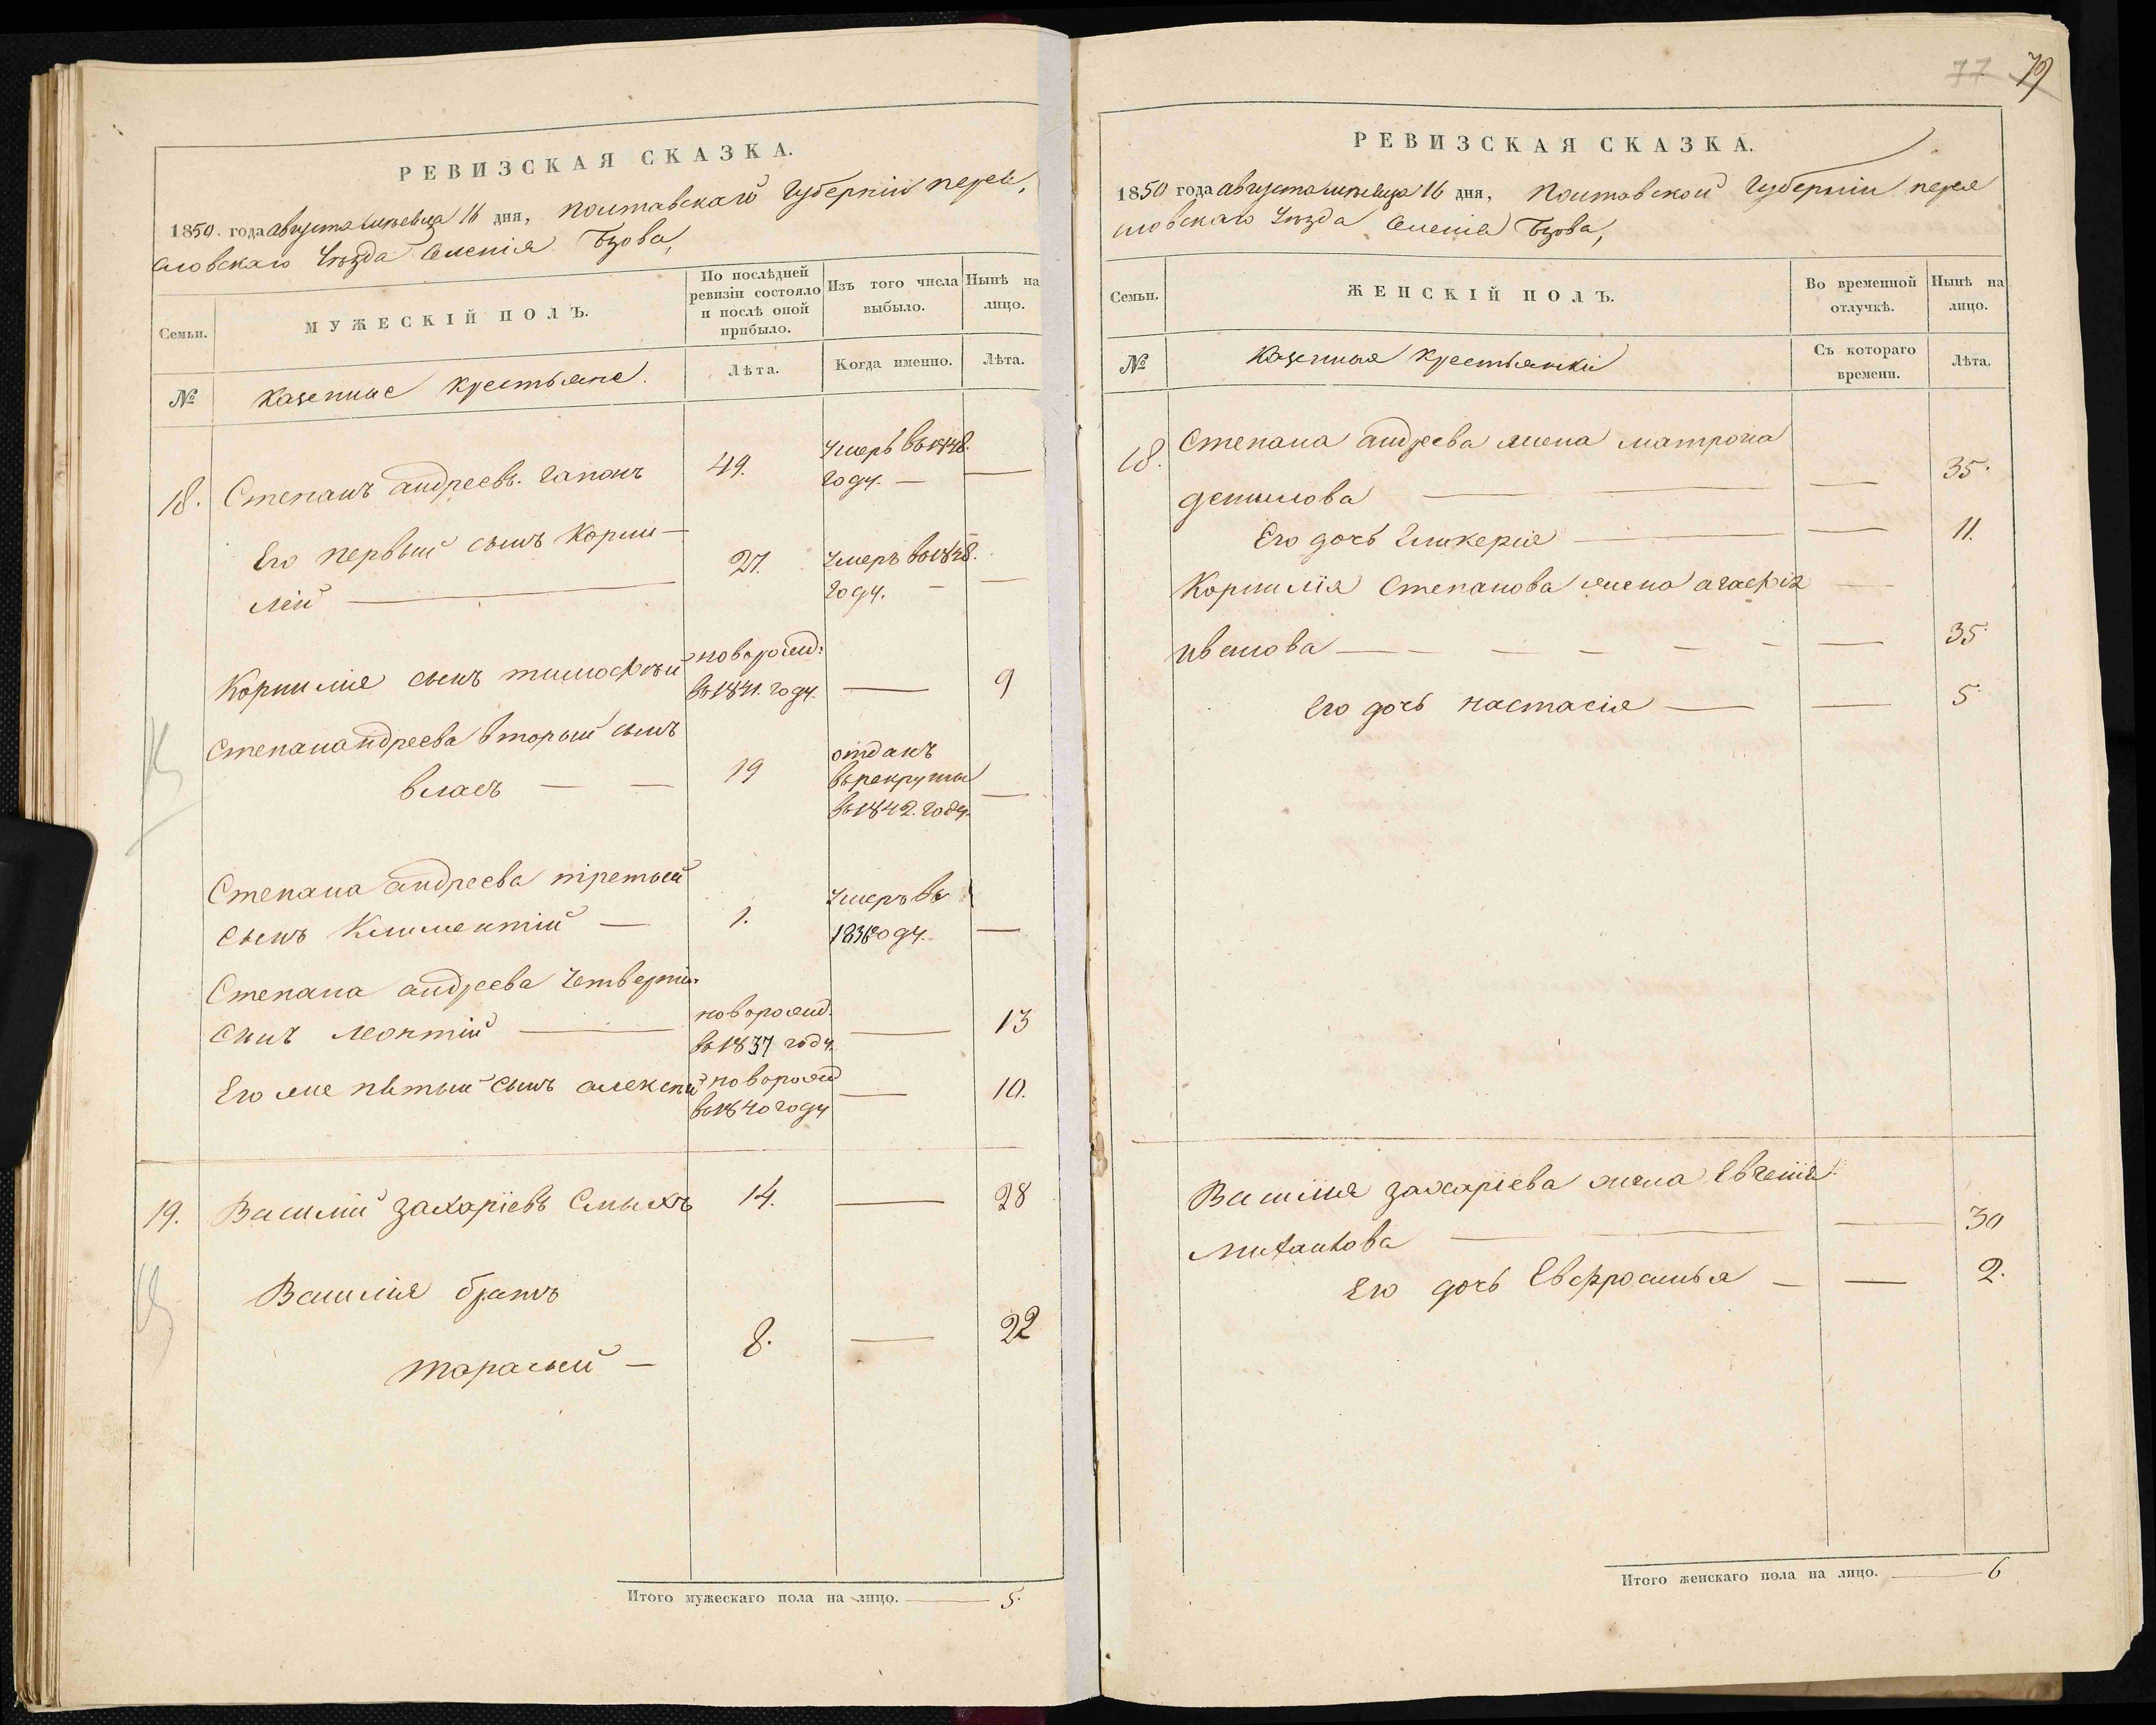 РЕВИЗСКАЯ СКАЗКА.
1850. года августа месяца 16 дня, Полтавской Губернии Перея,
словскаго Уезда Селения Бзова,
Семьи.
МУЖЕСКІЙ ПОЛЪ.
По послѣдней
ревизіи состояло
и послѣ оной
прибыло.
Изъ того числа
выбыло.
Нынѣ на
лицо.
№
Казенные крестьяне.
Лѣта.
Когда именно.
Лѣта.
18. Степанъ андреевъ. гапонъ 49. Умеръ въ 1848.
году. —
Его первый сынъ Корни—
лій 27. Умеръ въ 1848.
году. —
Корнилія сынъ тимофѣй новорожд:
въ 1841. году. — 9
Степана андреева вторый сынъ
власъ — — 19 отданъ
въ рекруты
въ 1842. году. —
Степана андреева третьей
сынъ Климентій — 1. Умеръ въ
1836 году. —
Степана андреева четверти
сынъ леонтій — новорожд.
въ 1837 году. — 13
Его же пятый сынъ алексѣй новорожд
въ 1840 году — 10.
19. Василій захаріевъ Смыкъ 14. — 28
Василія братъ
тарасий — 8. — 22
Итого мужескаго пола на лицо. — 5.
77 79
РЕВИЗСКАЯ СКАЗКА.
1850 года августа месяца 16 дня, Полтавской Губерніи Перея
словскаго Уезда Селенія Бзова,
Семьи.
ЖЕНСКІЙ ПОЛЪ.
Во временной
отлучкѣ.
Нынѣ на
лицо.
№
Казенныя крестьянки
Съ котораго
времени.
Лѣта.
18. Степана андреева жена матрона
данилова — — — 35.
Его дочь Гликерія — — 11.
Корнилія Степанова жена агафія —
иванова — — — — — — — 35
Его дочь настасія — — 5
Василія захаріева жена Евгенія
— — 30
Его дочь Евфросинья — — 2.
Итого женскаго пола на лицо. — 6